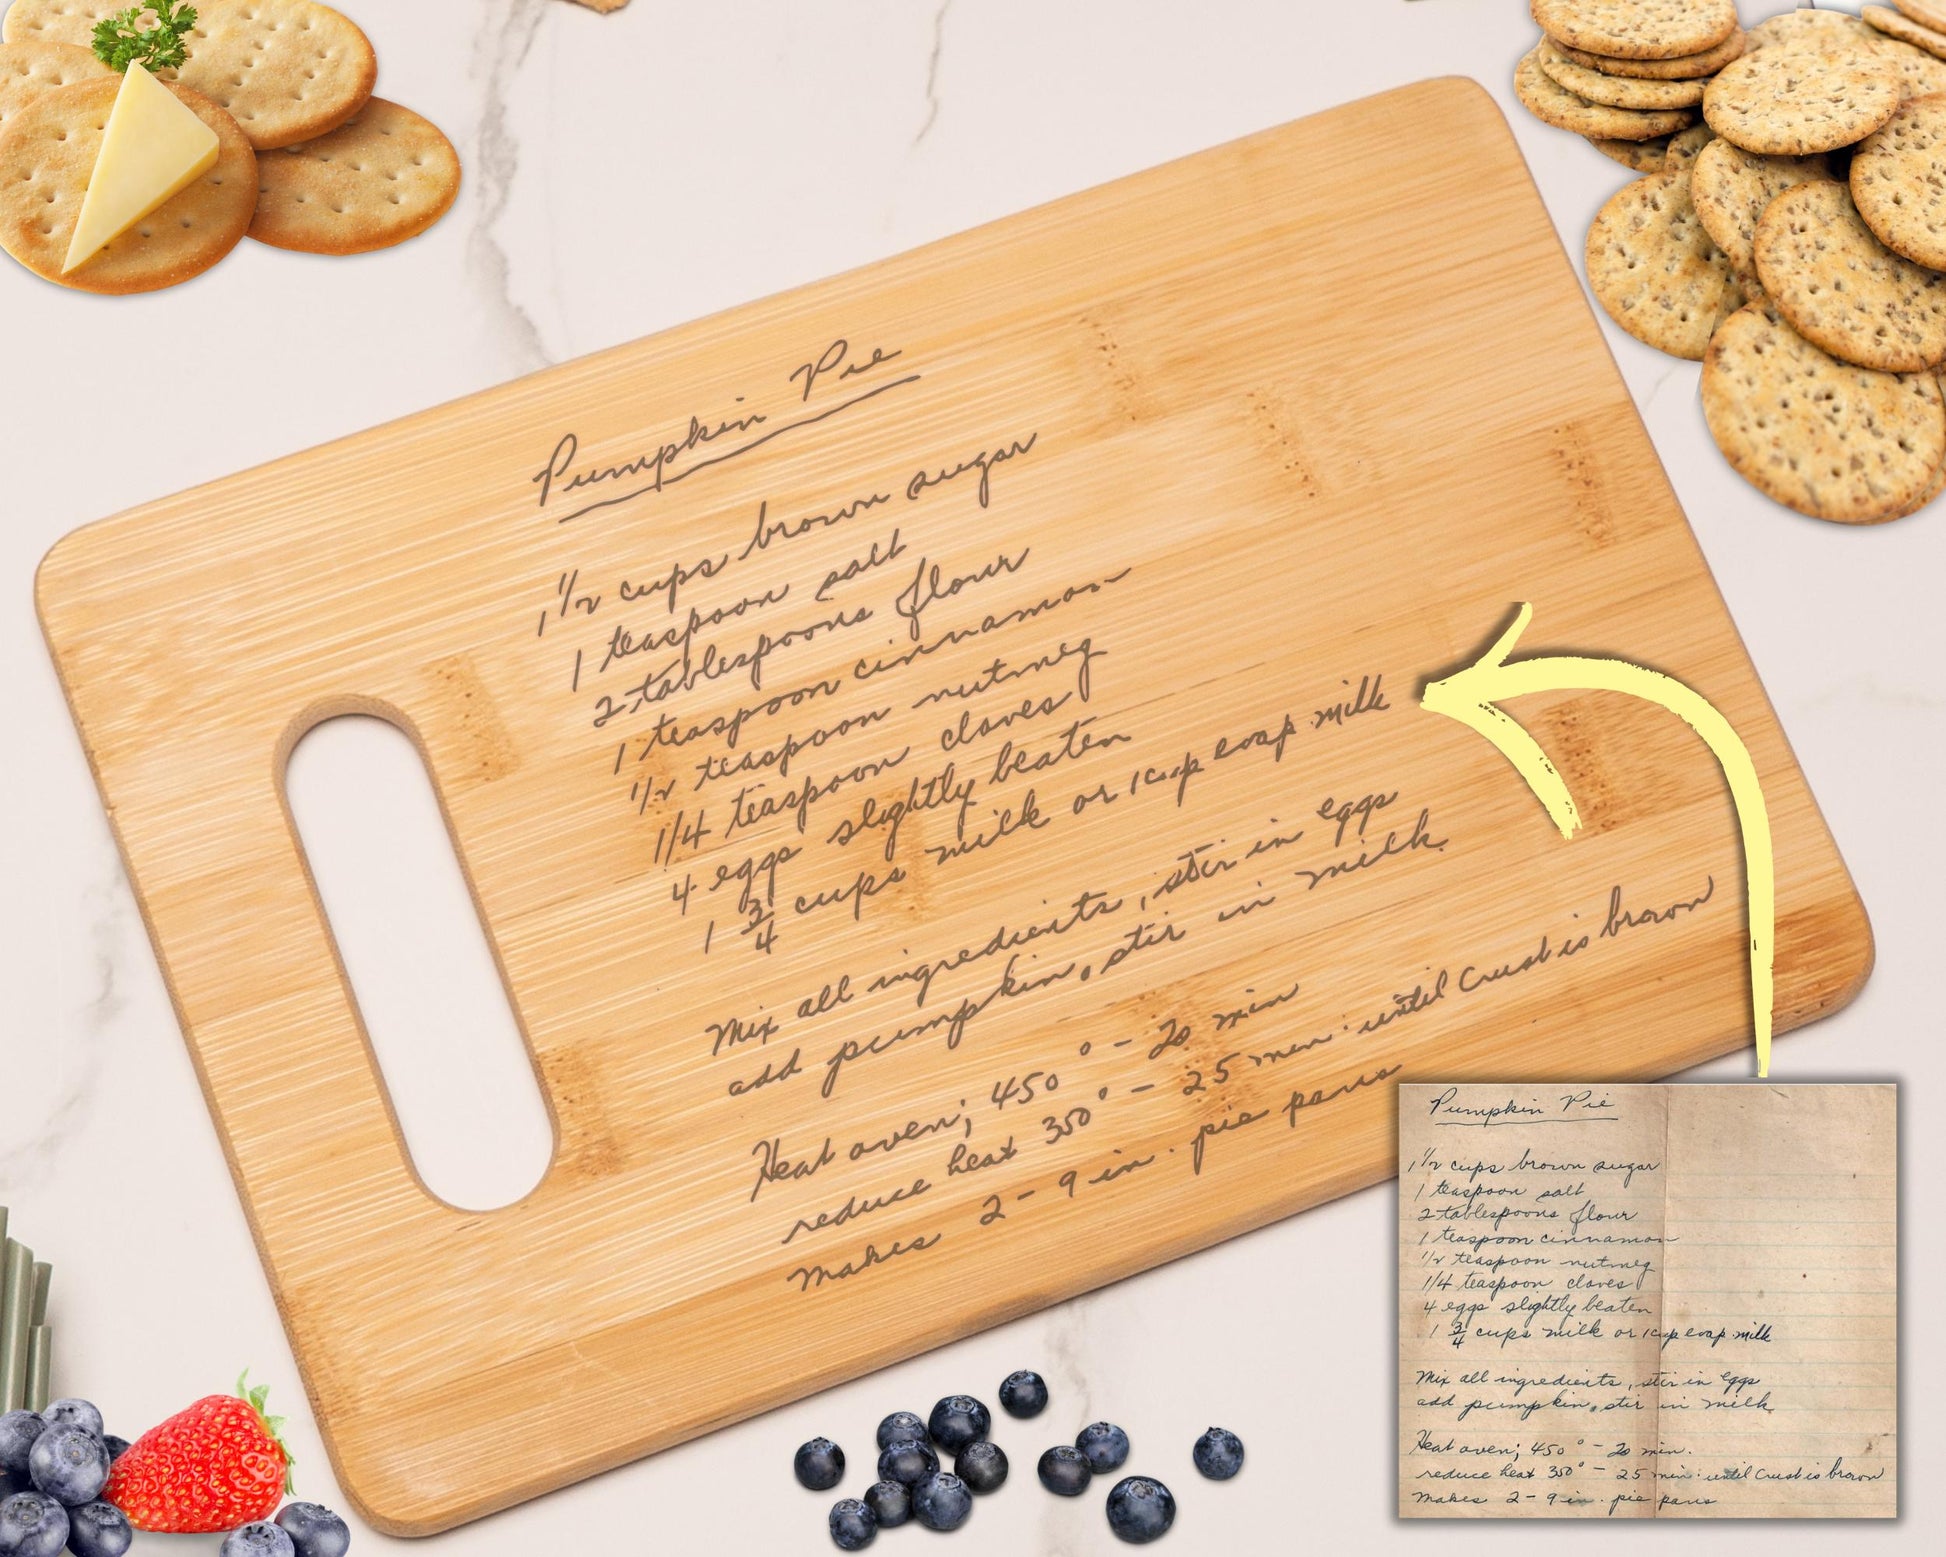 Pumpkin Pie
1 1/2 cups brown sugar
1 teaspoon salt
2 tablespoons flour
1 teaspoon cinnamon
1/2 teaspoon nutmeg
1/4 teaspoon cloves
4 eggs slightly beaten
1 3/4 cups milk or 1 cup evap milk
Mix all ingredients, stir in eggs
add pumpkin, stir in milk.
Heat oven; 450° - 20 min
reduce heat 350° - 25 min. until crust is brown
makes 2 - 9 in. pie pans
Pumpkin Pie
1 1/2 cups brown sugar
1 teaspoon salt
2 tablespoons flour
1 teaspoon cinnamon
1/2 teaspoon nutmeg
1/4 teaspoon cloves
4 eggs slightly beaten
1 3/4 cups milk or 1 cup evap milk
Mix all ingredients, stir in eggs
add pumpkin, stir in milk.
Heat oven; 450° - 20 min.
reduce heat 350° - 25 min. until crust is brown
makes 2 - 9 in. pie pans